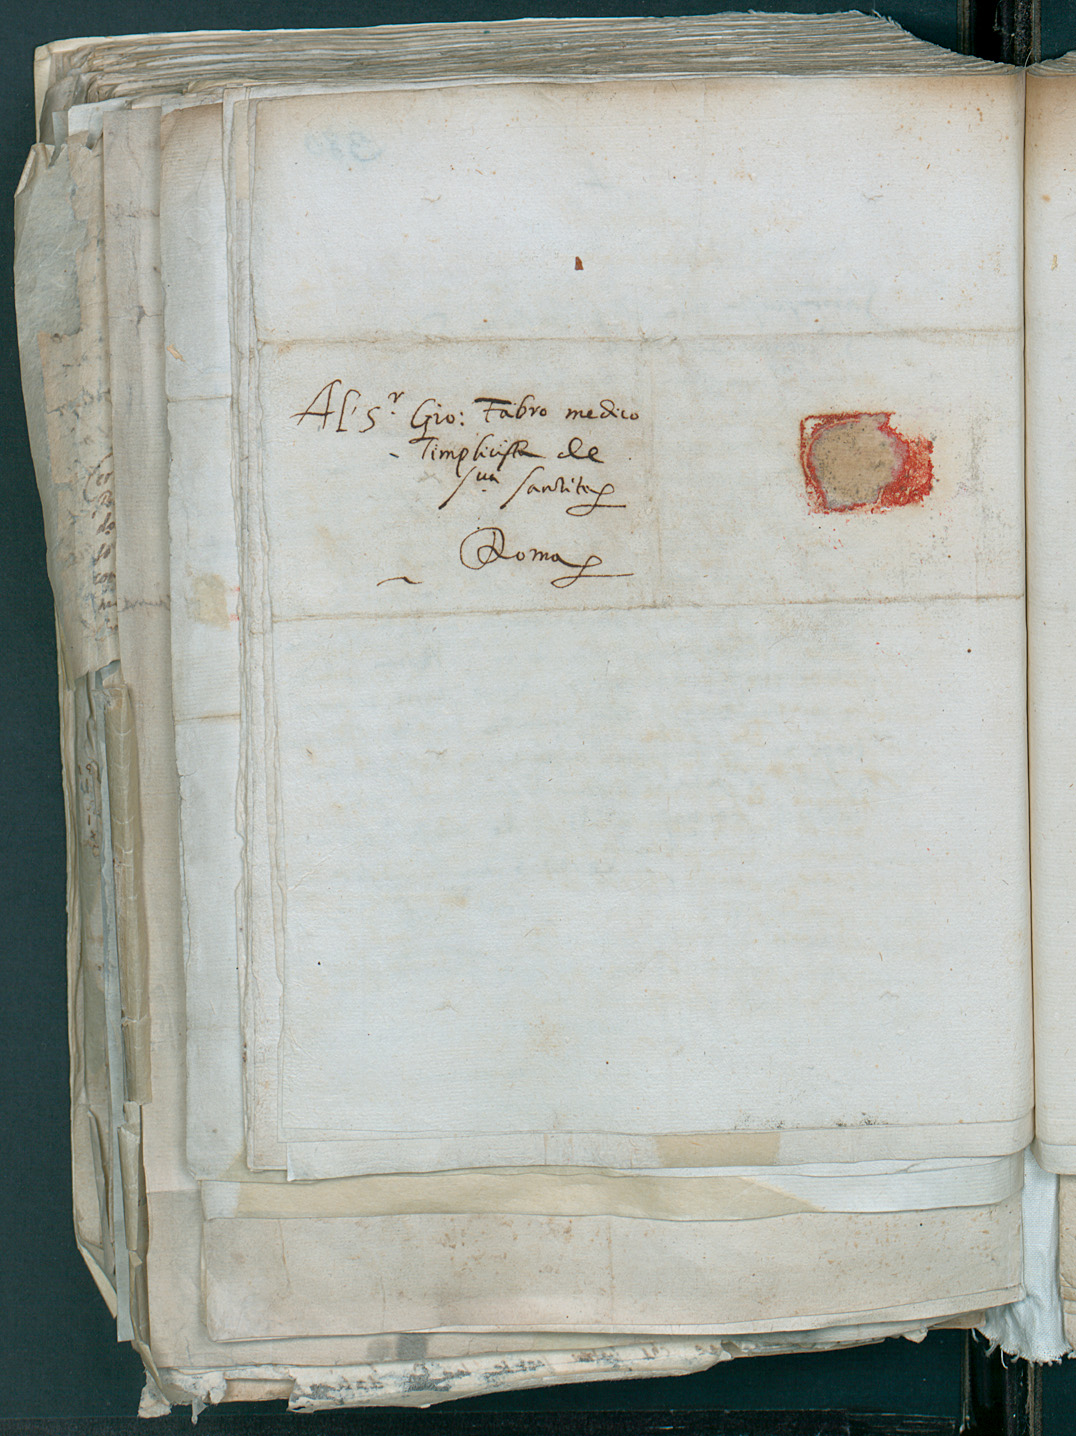 Al' S.r Gio: Fabro medico
simplicista de
sua santita
Roma